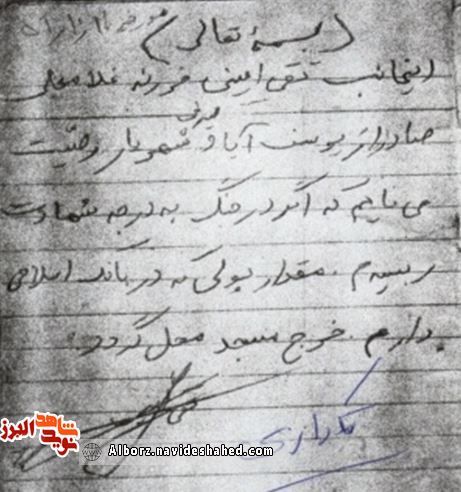 (بسمه تعالی)
اینجانب تقی امینی فرزند غلامعلی
صادره از یوسف آباد شهریار وصیت
می نمایم که اگر در جنگ به درجه شهادت
رسیدم. مقدار پولی که در بانک اسلامی
دارم. خرج مسجد محل گردد.
نوید شاهد البرز
Alborz.navideshahed.com